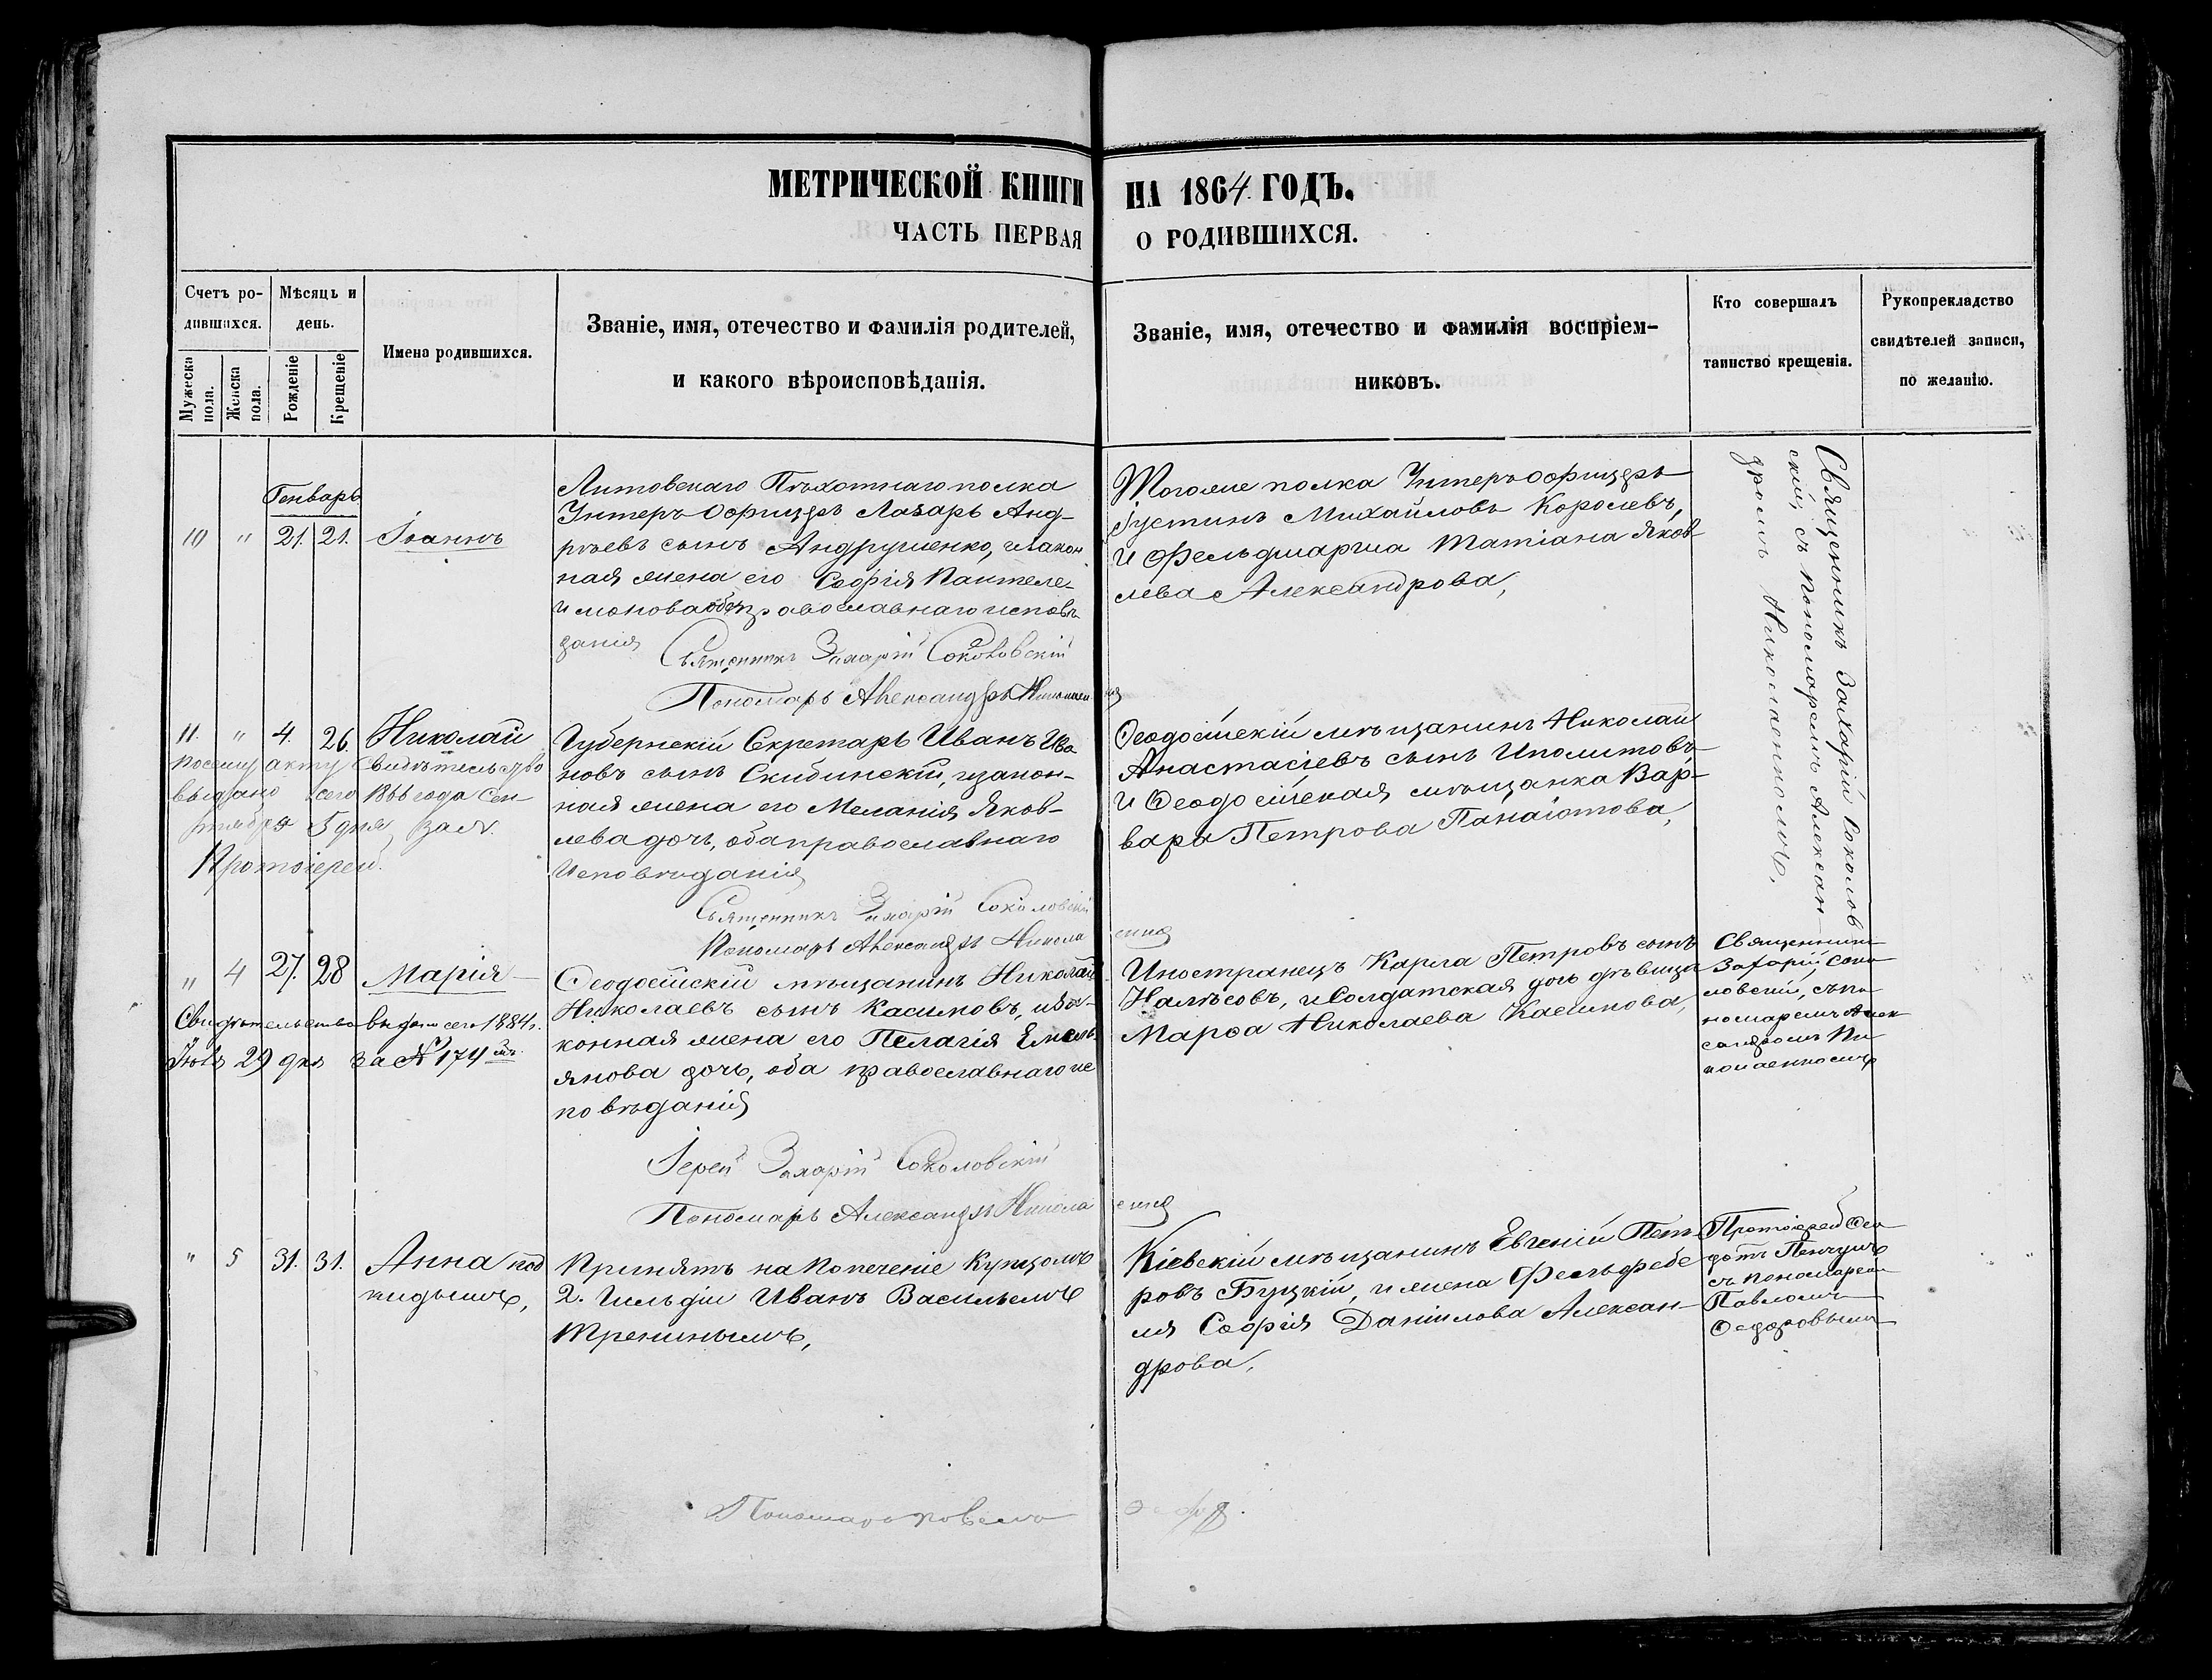 МЕТРИЧЕСКОЙ КНИГИ НА 1864 ГОДЪ.
ЧАСТЬ ПЕРВАЯ О РОДИВШИХСЯ.
Счетъ ро-
дившихся.
Мужеска
пола.
Женска
пола.
Мѣсяцъ и
день.
Рожденіе
Крещеніе
Имена родившихся.
Званіе, имя, отечество и фамилія родителей,
и какого вѣроисповѣданія.
Званіе, имя, отечество и фамилія воспріем-
никовъ.
Кто совершалъ
таинство крещенія.
Рукоприкладство
свидѣтелей записи,
по желанію.
Генварь
10 " 21. 21. Іоаннъ
Литовскаго Пѣхотнаго полка
Унтеръ Офицеръ Лазарь Анд-
рѣевъ сынъ Андрущенко, и закон
ная жена его Софія Пантеле-
имонова оба православнаго исповѣ
данія
Священникъ Захарій Соколовскій
Пономарь Александръ Николаенко
Тогоже полка Унтеръ офицеръ
Іустинъ Михайловъ Королевъ,
и Фельдшарша Татіана Яков
лева Александрова,
Священникъ Захарій Соколов
скій, съ Пономаремъ Алексан
дромъ Николаенкомъ.
11. " 4. 26. Николай
По сему акту Свидѣтельство
выдано сего 1866 года Сен
тября 5 дня за №.
Протоіерей
Губернскій Секретарь Иванъ Ива
новъ сынъ Скибинскій, и закон-
ная жена его Меланія Яков-
лева дочь, оба православнаго
Исповѣданія
Священникъ Захарій Соколовскій
Пономарь Александръ Николаенко
Ѳеодосійскій мѣщанинъ Николай
Анастасіевъ сынъ Иполитовъ
и Ѳеодосійская мѣщанка Вар-
вара Петрова Панаіотова,
" 4 27. 28 Марія
Свидѣтельство выдано сего 1884 г.
Іюля 29 дня за № 174
Ѳеодосійскій мѣщанинъ Николай
Николаевъ сынъ Касимовъ, и за-
конная жена его Пелагія Емель
янова дочь, оба православнаго ис
повѣданія
Іерей Захарій Соколовскій
Пономарь Александръ Николаенко
Иностранецъ Карла Петровъ сынъ
и Солдатская дочь дѣвица
Марѳа Николаева Касимова,
Священникъ
Захарій Соко
ловскій, съ по
номаремъ Алек
сандромъ Ни
колаенкомъ
" 5 31. 31. Анна под
кидышъ,
Принятъ на Попеченіе Купцомъ
2. Гильдіи Иванъ Васильемъ
Трениннымъ,
Кіевскій мѣщанинъ Евгеній Пет
ровъ Буцкій, и жена Фельдфебе
ля Софія Даніилова Алексан-
дрова,
Протоіерей Ѳео
дотъ
съ пономаремъ
Павломъ
Ѳедоровымъ
Пономарь